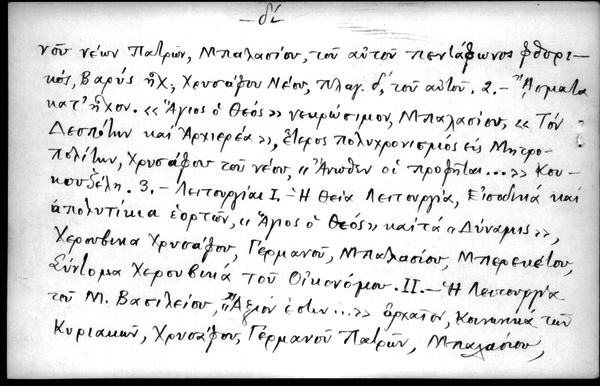 – δ΄ –
νοῦ νέων Πατρῶν, Μπαλασίου, τοῦ αὐτοῦ πεντάφωνος φθορι-
κός, Βαρύς ἦχ., Χρυσάφου Νέου, πλαγ. δ΄, τοῦ αὐτοῦ. 2.– Ἄσματα
κατ' ἦχον. «Ἅγιος ὁ Θεός» νεκρώσιμον, Μπαλασίου, «Τόν
Δεσπότην καί Ἀρχιερέα», ἕτερος πολυχρονισμός εἰς Μητρο-
πολίτην, Χρυσάφου τοῦ νέου, «Ἄνωθεν οἱ προφῆται...» Κου-
κουζέλη. 3.– Λειτουργίαι I.– Ἡ Θεία Λειτουργία, Εἰσοδικά καί
ἀπολυτίκια ἑορτῶν, «Ἅγιος ὁ Θεός» καί τά «Δύναμις»,
Χερουβικα Χρυσάφου, Γερμανοῦ, Μπαλασίου, Μπερεκέτου,
Σύντομα Χερουβικά τοῦ Οἰκονόμου. II.– Ἡ Λειτουργία
τοῦ Μ. Βασιλείου, «Ἄξιόν ἐστιν...» ἀρχαῖον, Κοινωνικά τῶν
Κυριακῶν, Χρυσάφου, Γερμανοῦ Πατρῶν, Μπαλασίου,